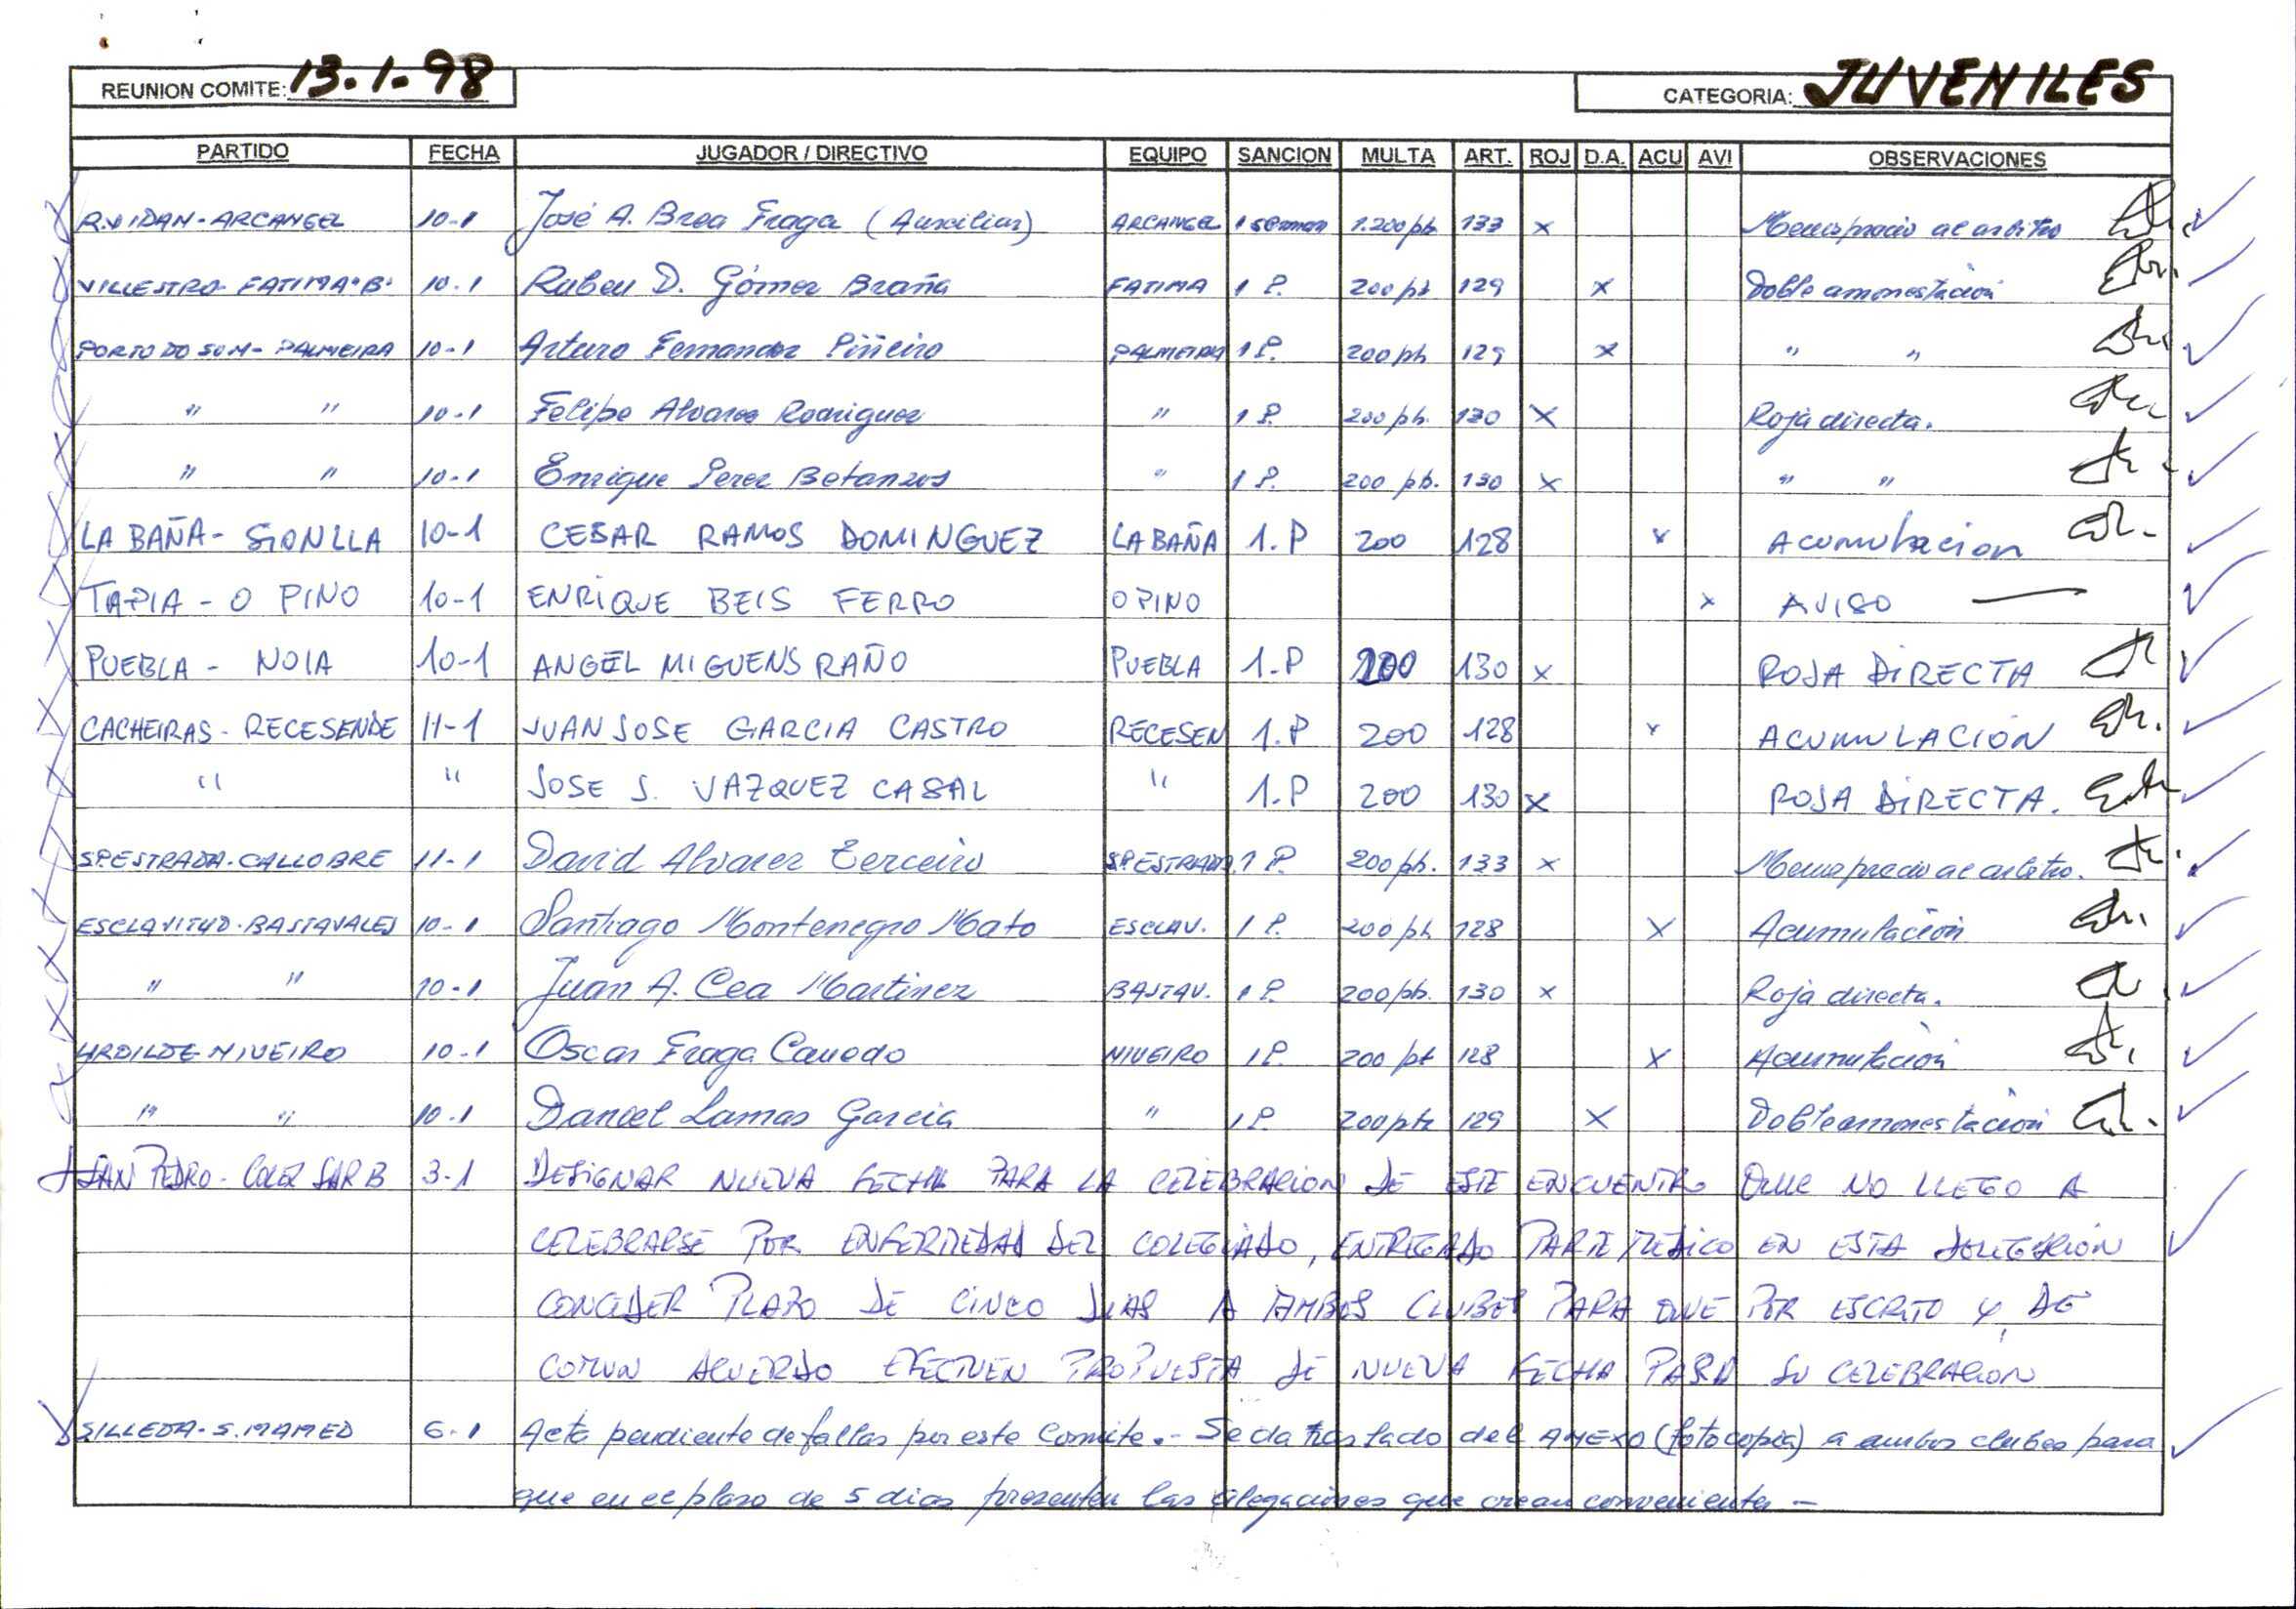 REUNION COMITE: 13.1.98 CATEGORIA: JUVENILES
PARTIDO FECHA JUGADOR / DIRECTIVO EQUIPO SANCION MULTA ART. ROJ D.A. ACU AVI OBSERVACIONES
R.VIDAN-ARCANGEL 10-1 José A. Brea Fraga (Auxiliar) ARCANGEL 1 semman 1.200 pts 133 x Menosprecio al arbitro
VILLESTRO-FATIMA "B" 10-1 Ruben D. Gómez Braña FATIMA 1 P. 200 pts 129 x Doble amonestación
PORTO DO SON-PALMEIRA 10-1 Arturo Fernandez Piñeiro PALMEIRA 1 P. 200 pts 129 x " "
" " 10-1 Felipe Alvarez Rodriguez " 1 P. 200 pts. 130 X Roja directa.
" " 10-1 Enrique Perez Betanzos " 1 P. 200 pts. 130 X " "
LA BAÑA-SIONLLA 10-1 CESAR RAMOS DOMINGUEZ LA BAÑA 1.P 200 128 x Acumulacion
TAPIA-O PINO 10-1 ENRIQUE BEIS FERRO O PINO x AVISO
PUEBLA-NOIA 10-1 ANGEL MIGUENS RAÑO PUEBLA 1.P 200 130 x ROJA DIRECTA
CACHEIRAS-RECESENDE 11-1 JUAN JOSE GARCIA CASTRO RECESEN 1.P 200 128 x ACUMULACIÓN
" " JOSE S. VAZQUEZ CASAL " 1.P 200 130 x ROJA DIRECTA.
SP.ESTRADA-CALLOBRE 11-1 David Alvarez Terceiro SP.ESTRADA 1 P. 200 pts. 133 x Menosprecio al arbitro.
ESCLAVITUD-BASTAVALES 10-1 Santiago Montenegro Mato ESCLAV. 1 P. 200 pts 128 X Acumulación
" " 10-1 Juan A. Cea Martinez BASTAV. 1 P. 200 pts. 130 x Roja directa.
URDILDE-NIVEIRO 10-1 Oscar Fraga Canedo NIVEIRO 1 P. 200 pt 128 X Acumulación
" " 10-1 Daniel Lamas Garcia " 1 P. 200 pts 129 X Doble amonestación
SAN PEDRO-COLER SAR B 3-1 DESIGNAR NUEVA FECHA PARA LA CELEBRACION DE ESTE ENCUENTRO QUE NO LLEGO A
CELEBRARSE POR ENFERMEDAD DEL COLEGIADO, ENTREGADO PARTE MEDICO EN ESTA DELEGACION
CONCEDER PLAZO DE CINCO DIAS A AMBOS CLUBES PARA QUE POR ESCRITO Y DE
COMUN ACUERDO EFECTUEN PROPUESTA DE NUEVA FECHA PARA SU CELEBRACION
SILLEDA-S.MAMED 6-1 Acta pendiente de fallar por este Comite.- Se da traslado del ANEXO (fotocopia) a ambos clubes para
que en el plazo de 5 dias presenten las alegaciones que crean convenientes.-